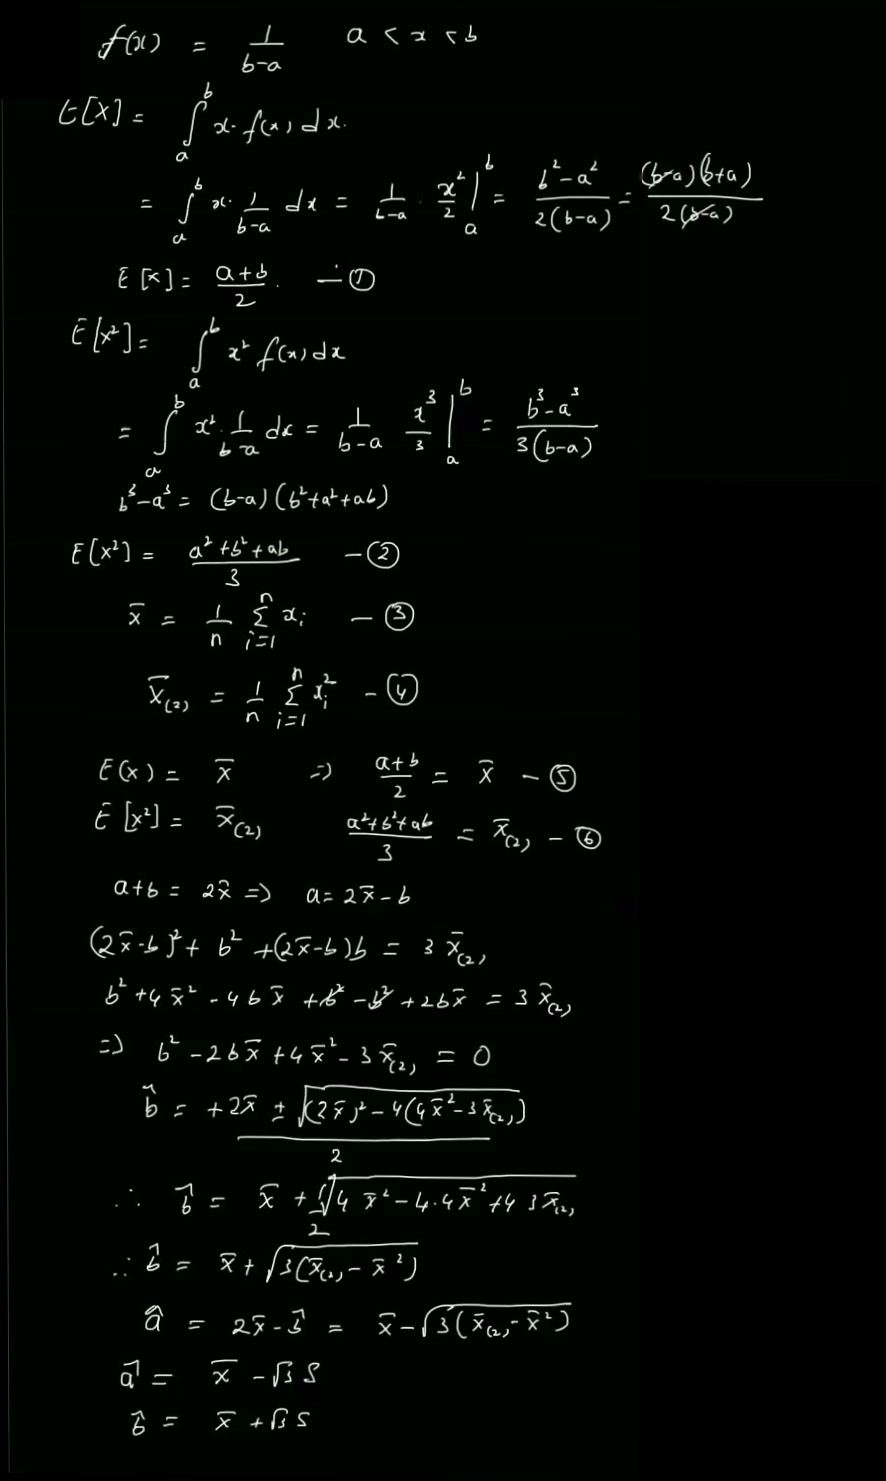 f(x) = 1/(b-a)   a < x < b
E[X] = ∫_a^b x. f(x) dx.
= ∫_a^b x. 1/(b-a) dx = 1/(b-a) . x²/2 |_a^b = (b²-a²)/(2(b-a)) = ((b-a)(b+a))/(2(b-a))
E[X] = (a+b)/2 . — ①
E[X²] = ∫_a^b x² f(x) dx
= ∫_a^b x². 1/(b-a) dx = 1/(b-a) x³/3 |_a^b = (b³-a³)/(3(b-a))
b³-a³ = (b-a)(b²+a²+ab)
E[X²] = (a²+b²+ab)/3 — ②
x̄ = 1/n Σ_{i=1}^n x_i — ③
x̄_(2) = 1/n Σ_{i=1}^n x_i² — ④
E(x) = x̄ => (a+b)/2 = x̄ — ⑤
E[x²] = x̄_(2)   (a²+b²+ab)/3 = x̄_(2) — ⑥
a+b = 2x̄ => a = 2x̄-b
(2x̄-b)² + b² + (2x̄-b)b = 3 x̄_(2)
b² + 4x̄² - 4bx̄ + b² - b² + 2bx̄ = 3 x̄_(2)
=> b² - 2bx̄ + 4x̄² - 3x̄_(2) = 0
b̂ = (+2x̄ ± √((2x̄)² - 4(4x̄²-3x̄_(2))))/2
∴ b̂ = x̄ + 1/2 √(4 x̄² - 4.4x̄² + 4 3x̄_(2))
∴ b̂ = x̄ + √(3(x̄_(2) - x̄²))
â = 2x̄ - b̂ = x̄ - √(3(x̄_(2) - x̄²))
â = x̄ - √3 S
b̂ = x̄ + √3 S